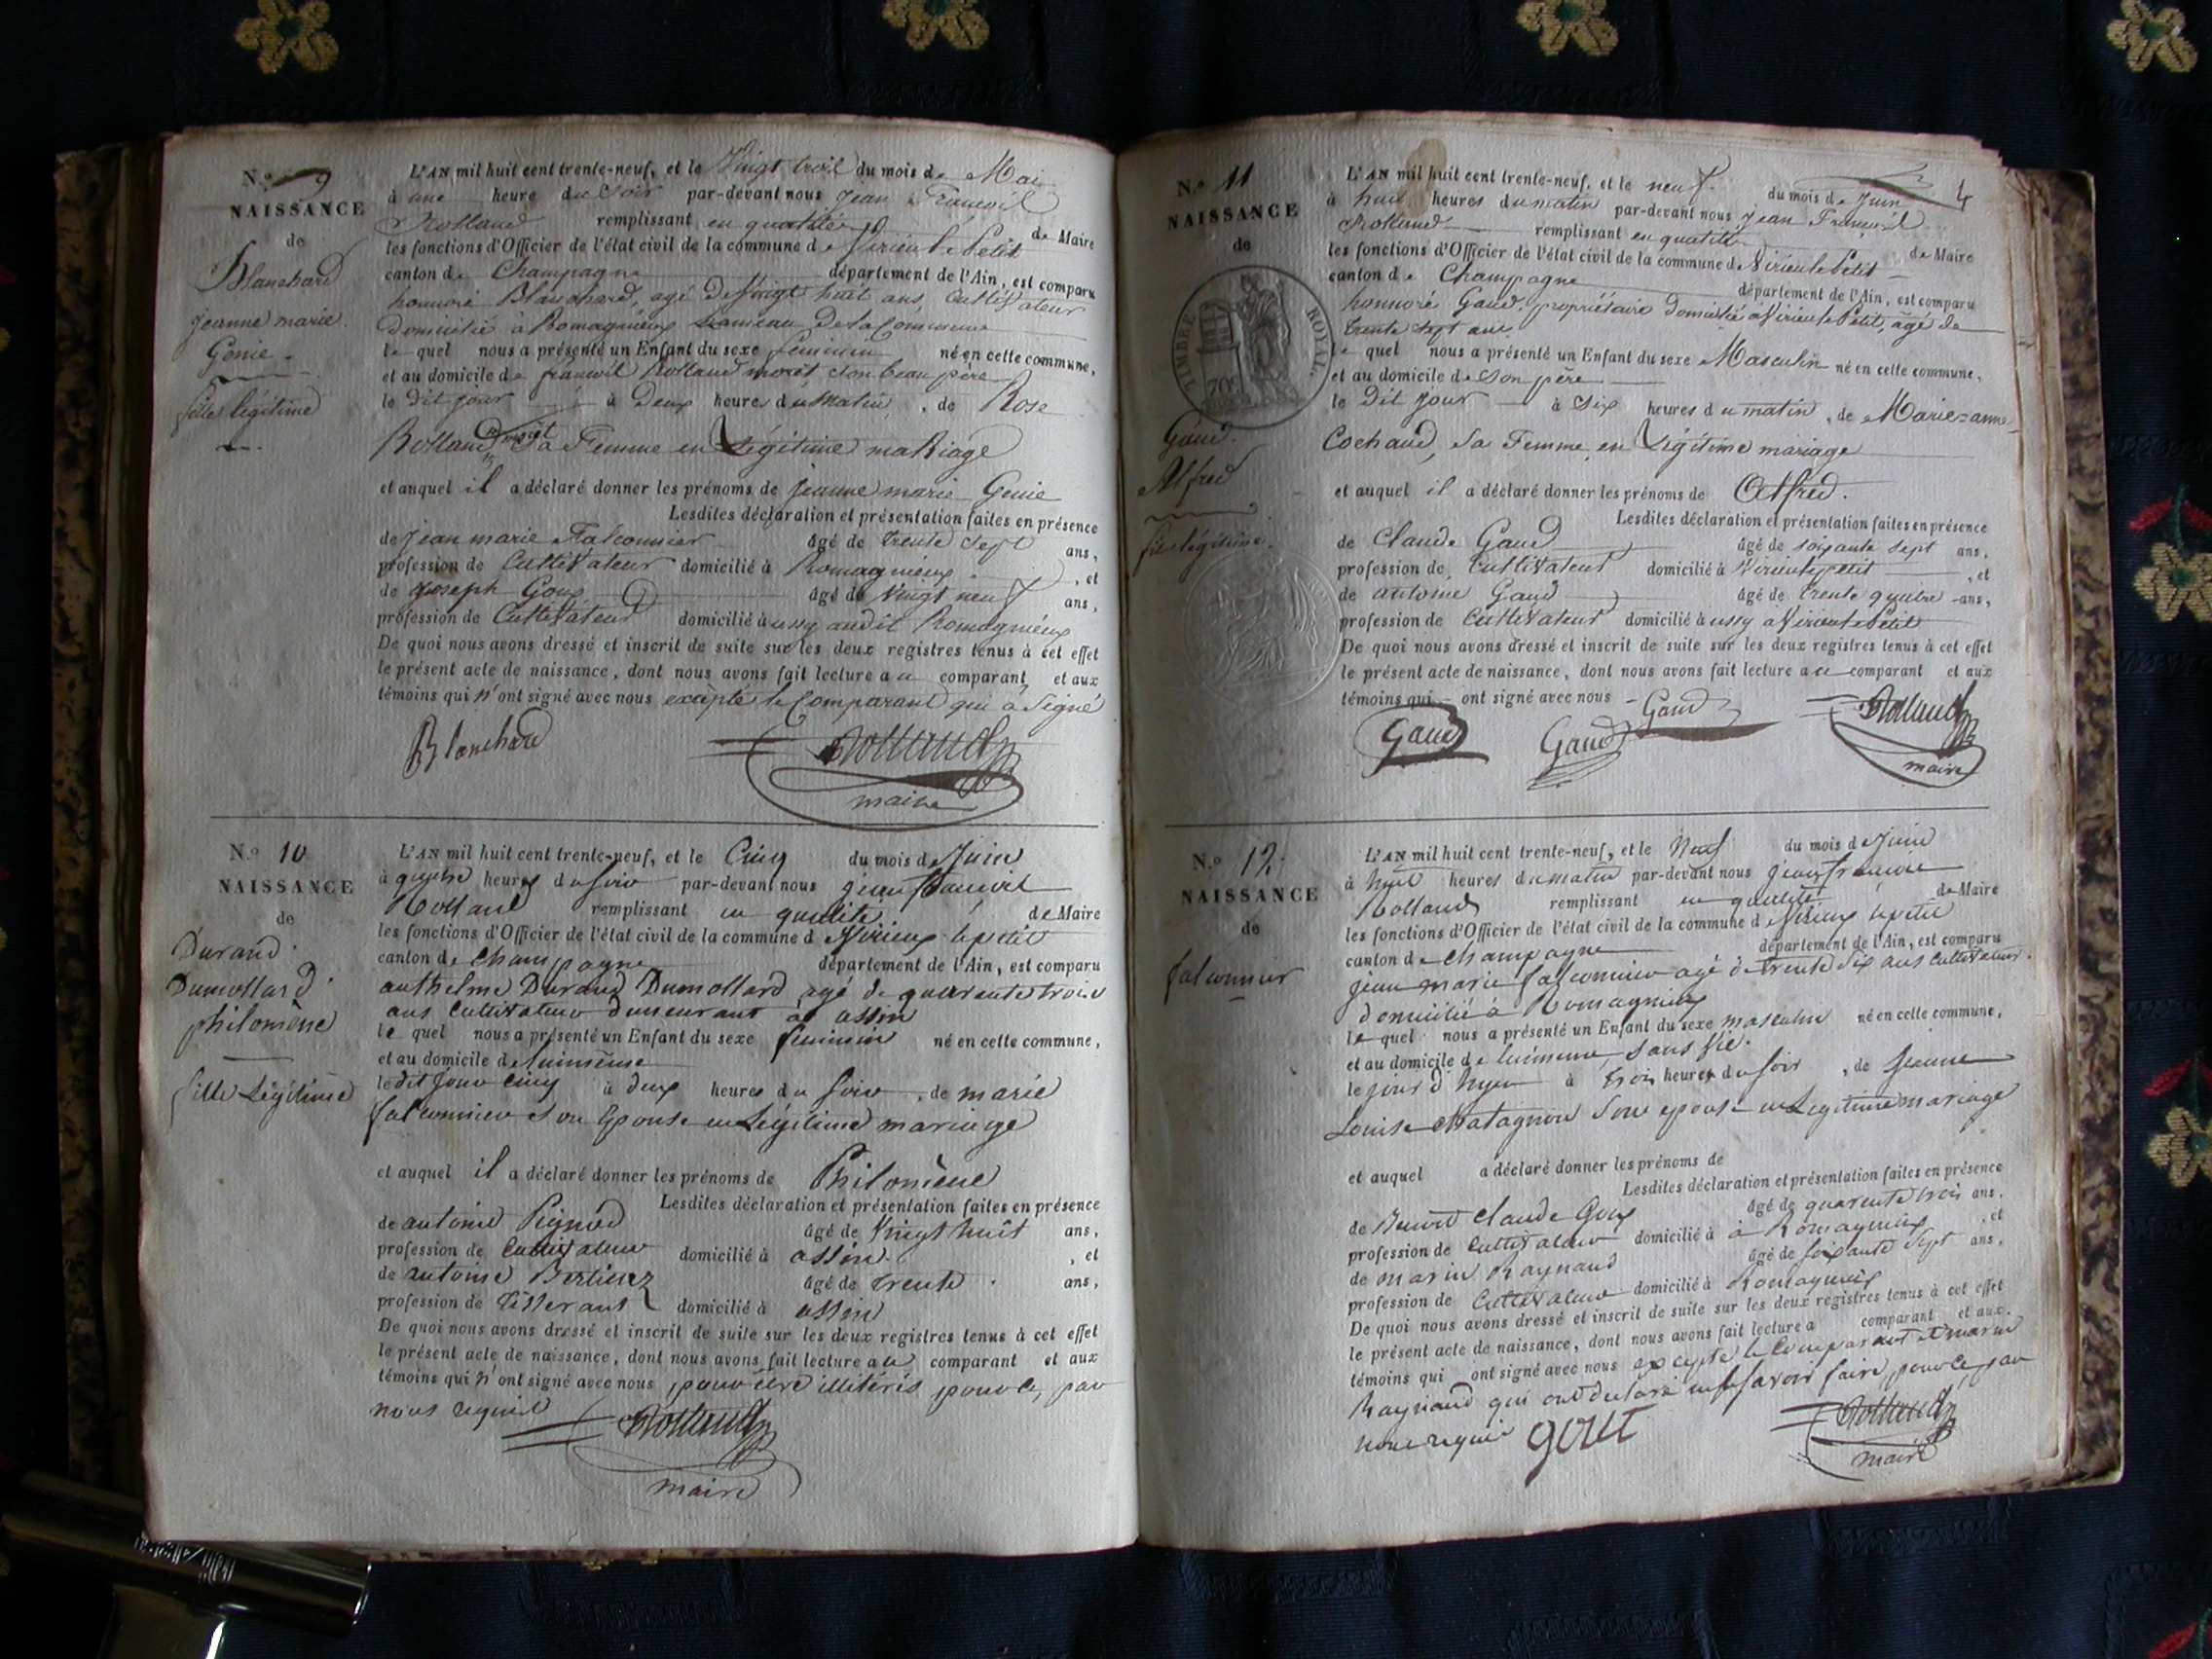 N.o 9
NAISSANCE
de
Blanchard
Jeanne marie
Génie
fille légitime
L'AN mil huit cent trente-neuf, et le Vingt trois du mois de Mai
à une heure du Soir par-devant nous Jean François
Rolland remplissant en qualité de Maire
les fonctions d'Officier de l'état civil de la commune de Virieu le Petit
canton de Champagne département de l'Ain, est comparu
honnoré Blanchard, agé de Vingt huit ans, Cultivateur
domicilié à Romagnieux hameau de la Commune
le quel nous a présenté un Enfant du sexe feminin né en cette commune,
et au domicile de francois Rolland moret Son beau père
le dit jour à Deux heures du Matin, de Rose
Rolland moret Sa Femme en Légitime maRiage
et auquel il a déclaré donner les prénoms de jeanne marie Genie
Lesdites déclaration et présentation faites en présence
de Jean marie Falconnier âgé de trente Sept ans,
profession de Cultivateur domicilié à Romagnieux, et
de Joseph Goux âgé de Vingt neuf ans,
profession de Cultivateur domicilié à ussy audit Romagnieux
De quoi nous avons dressé et inscrit de suite sur les deux registres tenus à cet effet
le présent acte de naissance, dont nous avons fait lecture au comparant et aux
témoins qui n'ont signé avec nous excepté le Comparant qui à Signé
Blanchard Rolland
maire
N.o 10
NAISSANCE
de
Durand
Dumollard
philomène
fille Légitime
L'AN mil huit cent trente-neuf, et le Cinq du mois de Juin
à quatre heures du soir par-devant nous jean francois
Rolland remplissant en qualité de Maire
les fonctions d'Officier de l'état civil de la commune d Virieux le petit
canton de Champagne département de l'Ain, est comparu
anthelme Durand Dumollard agé de quarante trois
ans Cultivateur demeurant a assin
le quel nous a présenté un Enfant du sexe feminin né en cette commune,
et au domicile de luimême
le dit jour cinq à deux heures du soir, de marie
falconnier son Epouse en Légitime mariage
et auquel il a déclaré donner les prénoms de Philomène
Lesdites déclaration et présentation faites en présence
de antoine Pignod âgé de Vingt huit ans,
profession de Cultivateur domicilié à assin, et
de antoine Bertienz âgé de trente ans,
profession de tisserant domicilié à assin
De quoi nous avons dressé et inscrit de suite sur les deux registres tenus à cet effet
le présent acte de naissance, dont nous avons fait lecture au comparant et aux
témoins qui n'ont signé avec nous pour être illitérés pour ce par
nous requis Rolland
maire
4
N.o 11
NAISSANCE
de
TIMBRE ROYAL
70c
Gaud
Alfred
fils légitime
L'AN mil huit cent trente-neuf, et le neuf du mois de Juin
à huit heures du matin par-devant nous Jean François
Rolland remplissant en qualité de Maire
les fonctions d'Officier de l'état civil de la commune de Virieu le Petit
canton de Champagne département de l'Ain, est comparu
honnoré Gaud, propriétaire domicilié à Virieu le Petit, âgé de
trente sept ans
le quel nous a présenté un Enfant du sexe Masculin né en cette commune,
et au domicile de Son père
le dit jour à Six heures du matin, de Marie=anne
Cochaud, Sa Femme en Légitime mariage
et auquel il a déclaré donner les prénoms de Alfred.
Lesdites déclaration et présentation faites en présence
de Claude Gaud âgé de soixante sept ans,
profession de Cultivateur domicilié à Virieu le petit, et
de antoine Gaud âgé de trente quatre ans,
profession de Cultivateur domicilié à ussy à Virieu le Petit
De quoi nous avons dressé et inscrit de suite sur les deux registres tenus à cet effet
le présent acte de naissance, dont nous avons fait lecture au comparant et aux
témoins qui ont signé avec nous Gaud Rolland
Gaud Gaud maire
N.o 12
NAISSANCE
de
falconnier
L'AN mil huit cent trente-neuf, et le Neuf du mois de Juin
à huit heures du matin par-devant nous jean francois
Rolland remplissant en qualité de Maire
les fonctions d'Officier de l'état civil de la commune d Virieux le petit
canton de Champagne département de l'Ain, est comparu
jean marie falconnier agé de trente six ans Cultivateur
domicilié à Romagnieux
le quel nous a présenté un Enfant du sexe masculin né en cette commune,
et au domicile de luimême sans Vie.
le jour d'hyer à trois heures du soir, de Jeanne
Louise Matagnon Son epouse en Legitime mariage
et auquel a déclaré donner les prénoms de
Lesdites déclaration et présentation faites en présence
de Benoit Claude Goux âgé de quarente trois ans,
profession de Cultivateur domicilié à à Romagnieux, et
de marin Raynaud âgé de soixante Sept ans,
profession de Cultivateur domicilié à Romagnieux
De quoi nous avons dressé et inscrit de suite sur les deux registres tenus à cet effet
le présent acte de naissance, dont nous avons fait lecture a comparant et aux
témoins qui ont signé avec nous excepté le Comparant et marin
Raynaud qui ont declaré ne savoir faire, pour ce par
nous requis goux Rolland
maire